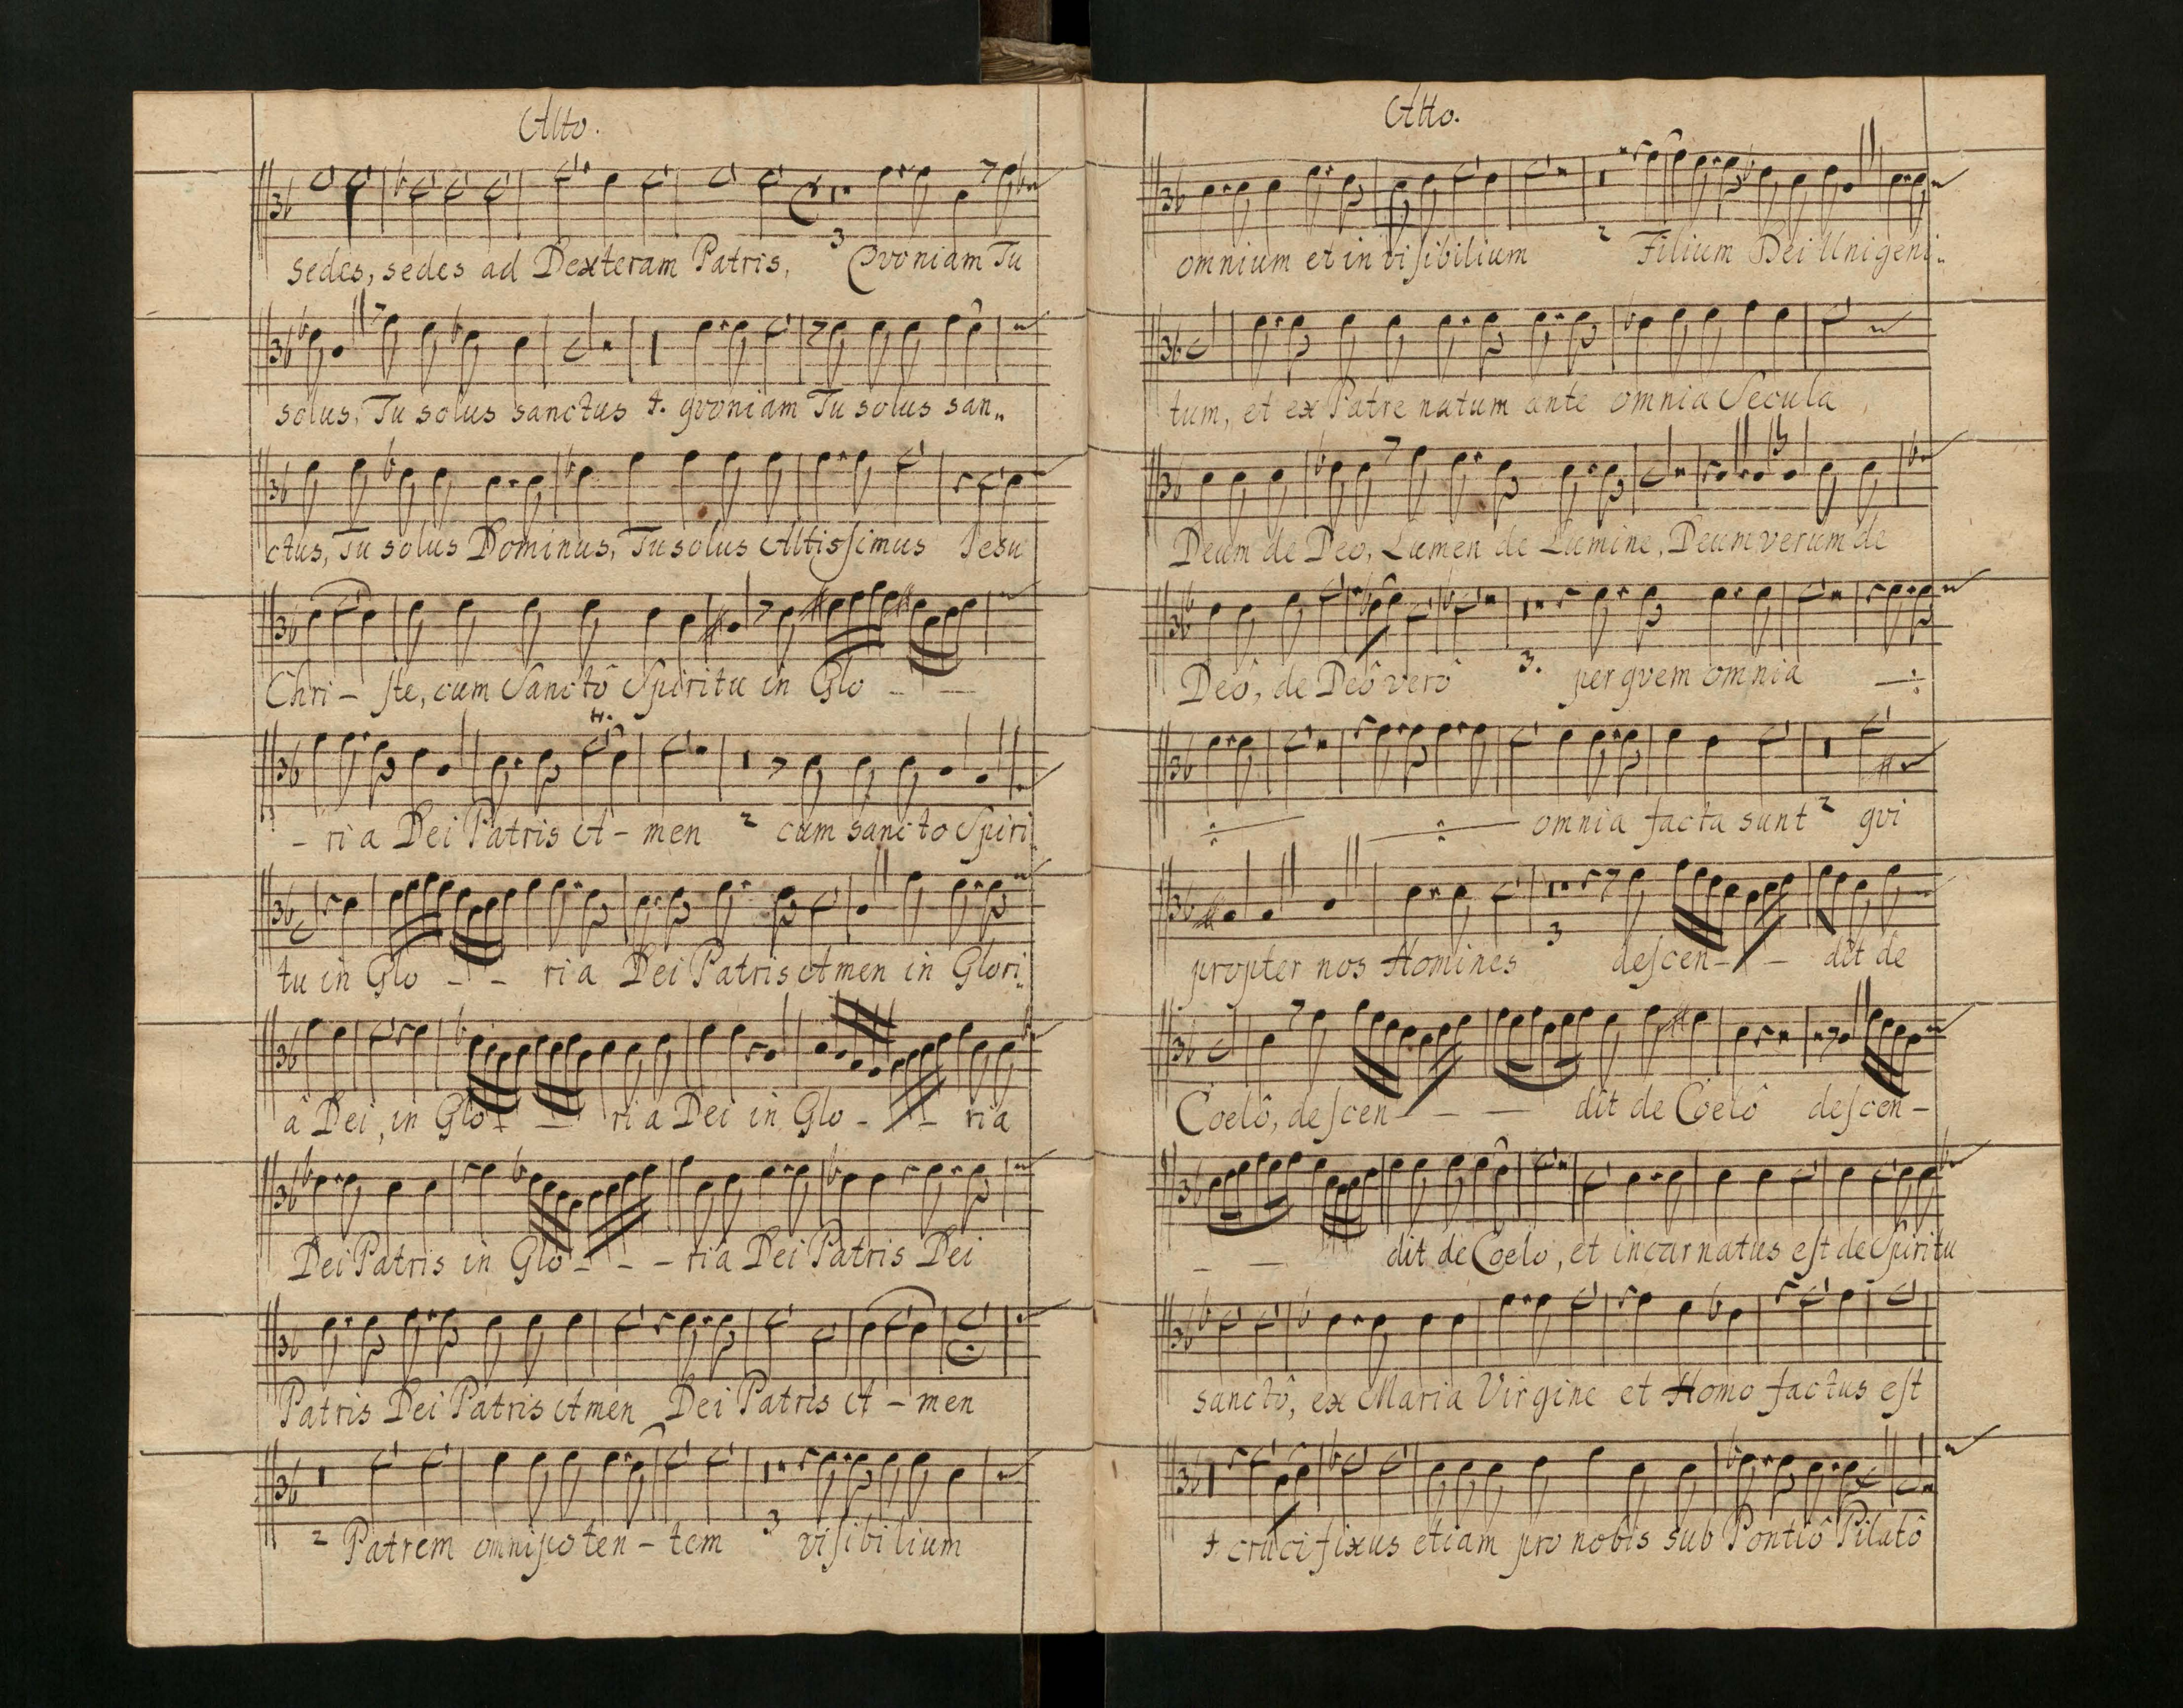 Alto.
Sedes, sedes ad Dexteram Patris, Qvoniam Tu
3
solus, Tu solus sanctus 4. qvoniam Tu solus san„
ctus, Tu solus Dominus, Tu solus Altissimus Jesu
Chri – ste, cum Sanctô Spiritu in Glo – –
– ri a Dei Patris A – men 2 cum sancto Spiri
tu in Glo – – ri a Dei Patris Amen in Glori„
â Dei, in Glo – – ri a Dei in Glo – – ria
Dei Patris in Glo – – – ria Dei Patris Dei
Patris Dei Patris Amen Dei Patris A – men
2 Patrem omnipoten – tem 3 visibilium
Alto.
2
omnium et in visibilium Filium Dei Unigeni„
tum, et ex Patre natum ante omnia Secula
Deum de Deo, Lumen de Lumine, Deum verum de
Deô, de Deô verô 3. per qvem omnia ÷
÷ ÷ omnia facta sunt 2 qvi
propter nos Homines 3 descen – – dit de
Coelô, descen – – – dit de Coelô descen –
– – dit de Coelo, et incarnatus est de Spiritu
sanctô, ex Maria Virgine et Homo factus est
4. crucifixus etiam pro nobis sub Pontiô Pilatô